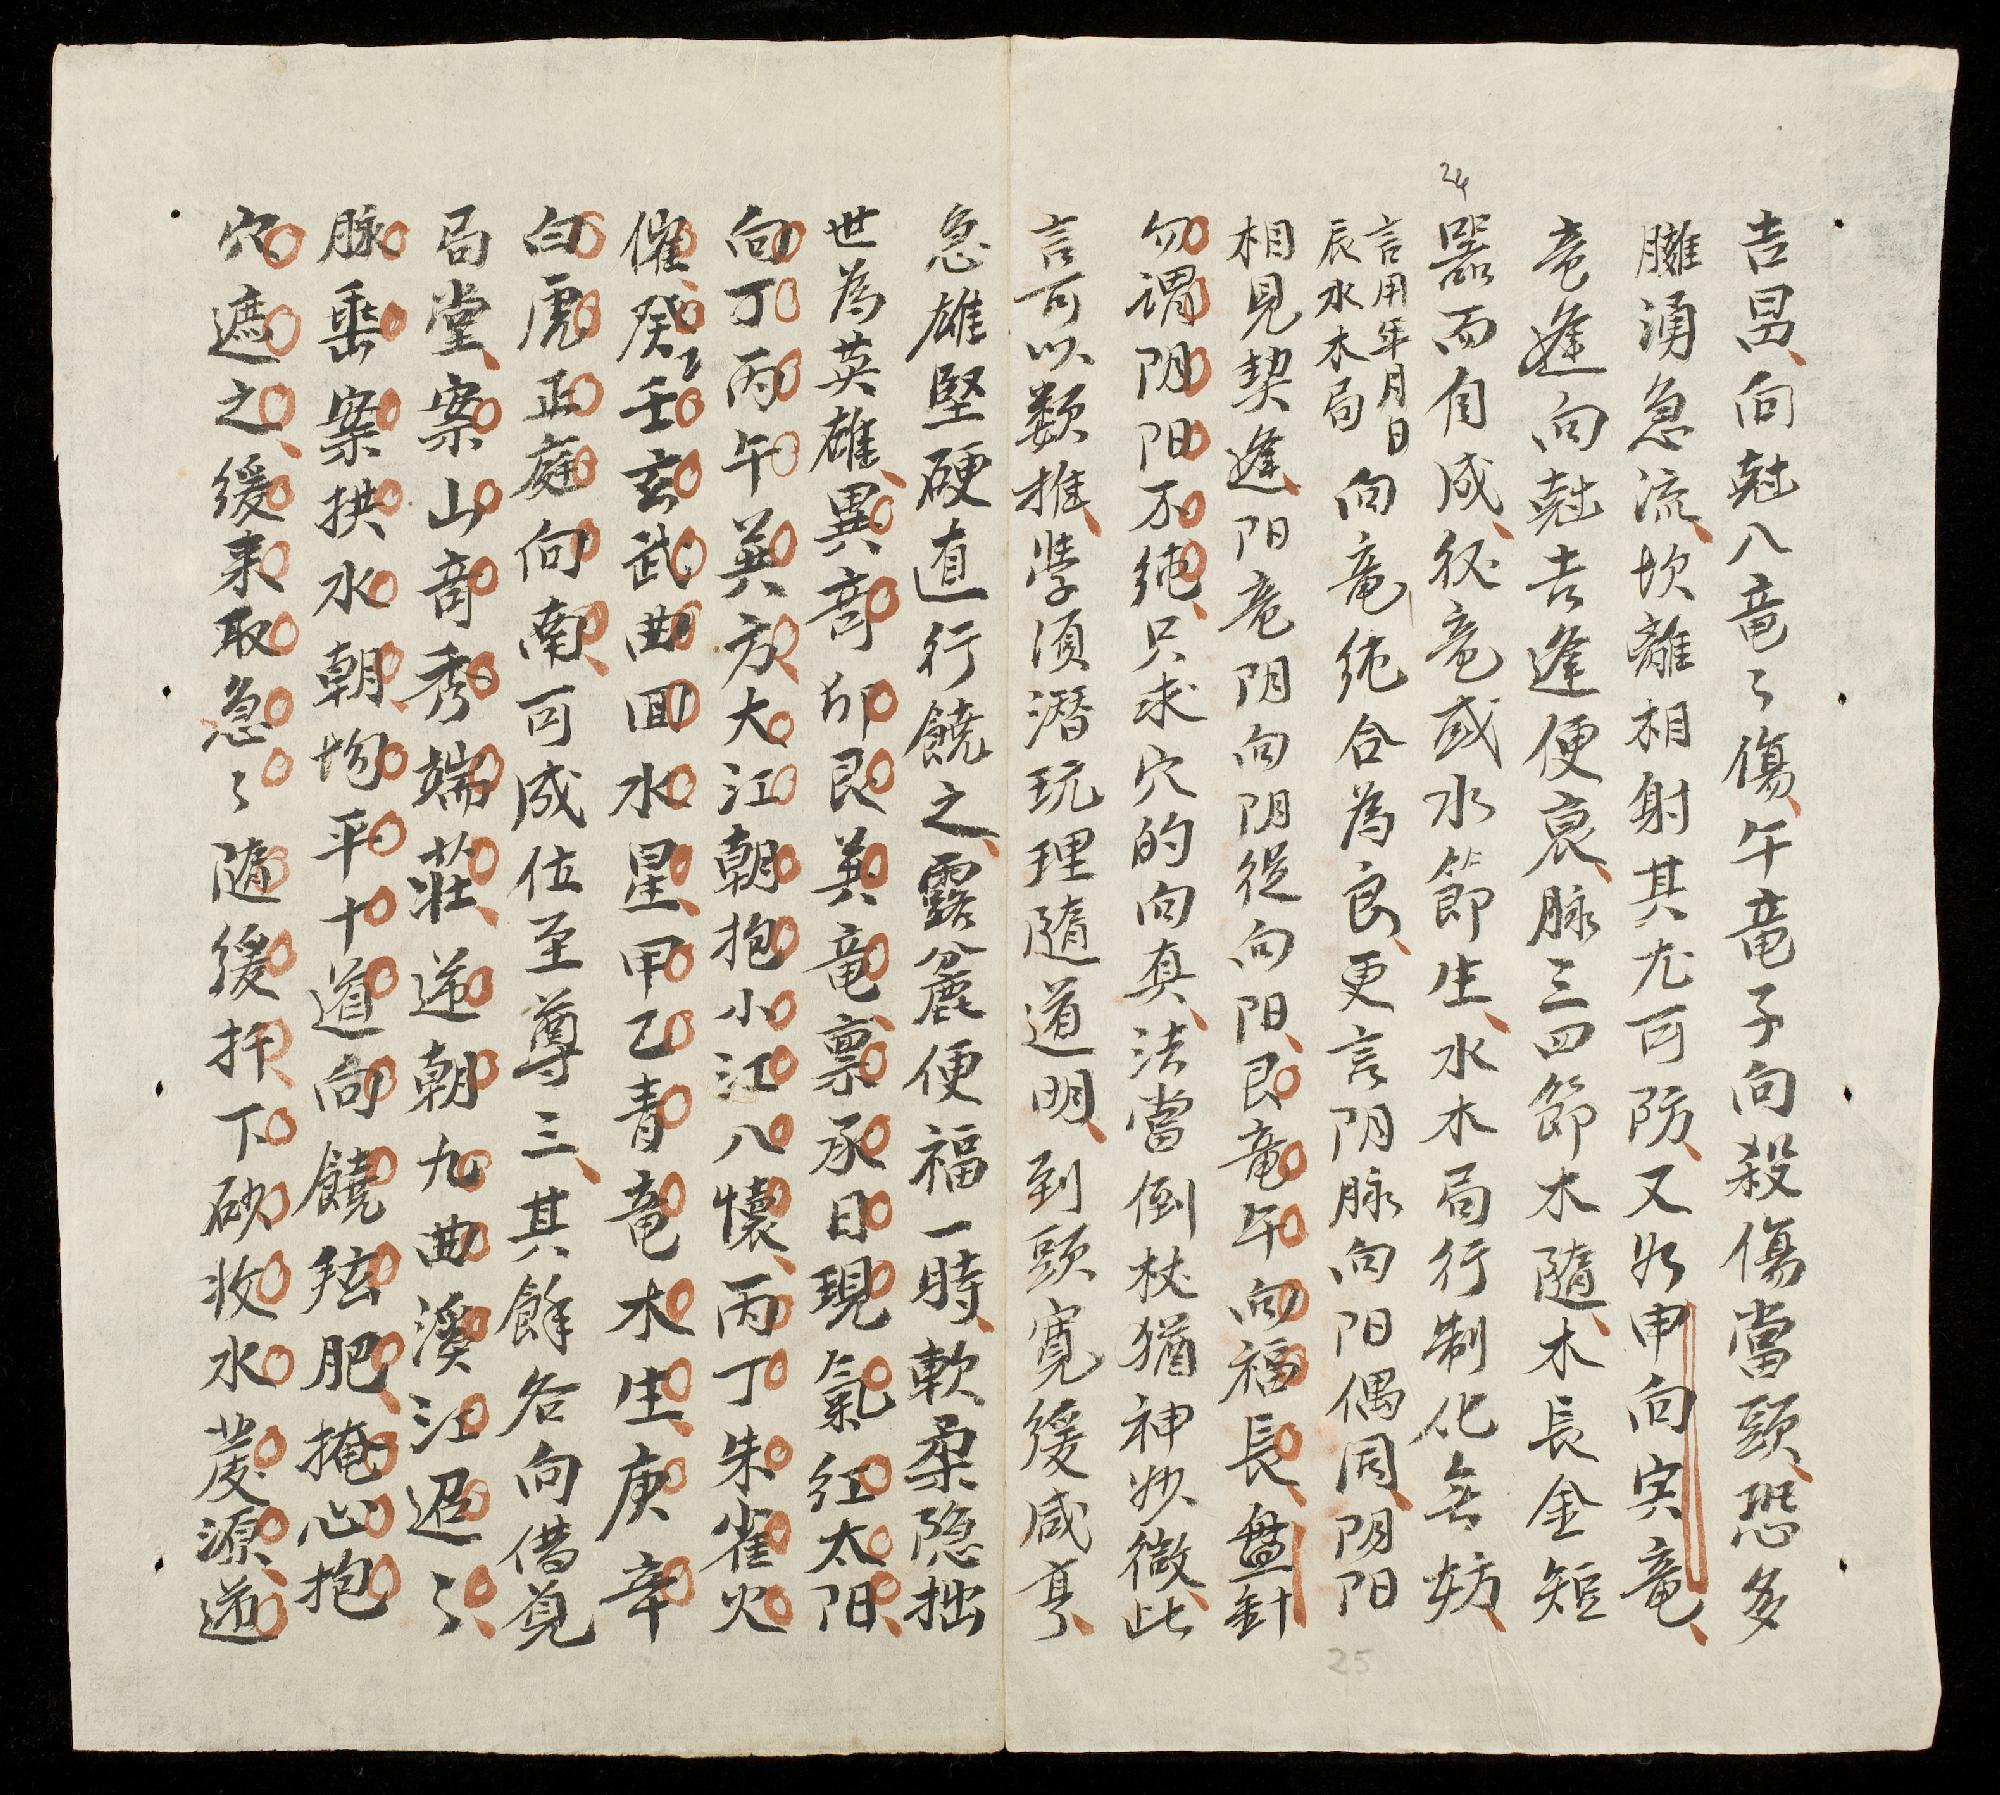 吉昌向尅八竜々傷午竜子向殺傷當頭恐多
臃湧急流坎離相射其尤可防又如申向寅竜
竜逢向尅吉逢便哀脉三四節木隨木長金短
24
器而自成从竜或水節生水木局行制化無妨
言用年月日
辰水木局
向竜純合為良更言阴脉向阳偶同阴阳
相見契逢阳竜阴向阴従向阳艮竜午向福長盤針
勿谓阴阳不純只求穴的向真法當倒杖猶神妙微此
言可以数推学須潛玩理隨道明到頭寛緩咸亨
急雄堅硬直行饒之露麄便福一時軟柔隐拙
世為英雄異竒卯艮巽竜禀承日現氣紅太阳
向丁丙午巽方大江朝抱小江八懐丙丁朱雀火
催癸壬玄武曲回水星甲乙青竜木生庚辛
白虎正庭向南可成位至尊三其餘各向借覓
局堂案山竒秀端莊逆朝九曲溪江迢々
脉垂案拱水朝均平十道向饒弦肥掩心抱
穴遮之緩来取急々隨緩扦下砂收水發源逆
25